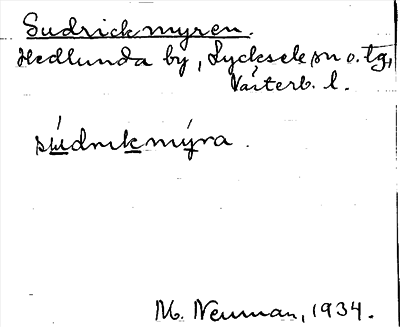 Sudrickmyren.
Hedlunda by, Lycksele sn o. tg,
Västerb. l.
súdrɩkmýra.
M. Neuman, 1934.